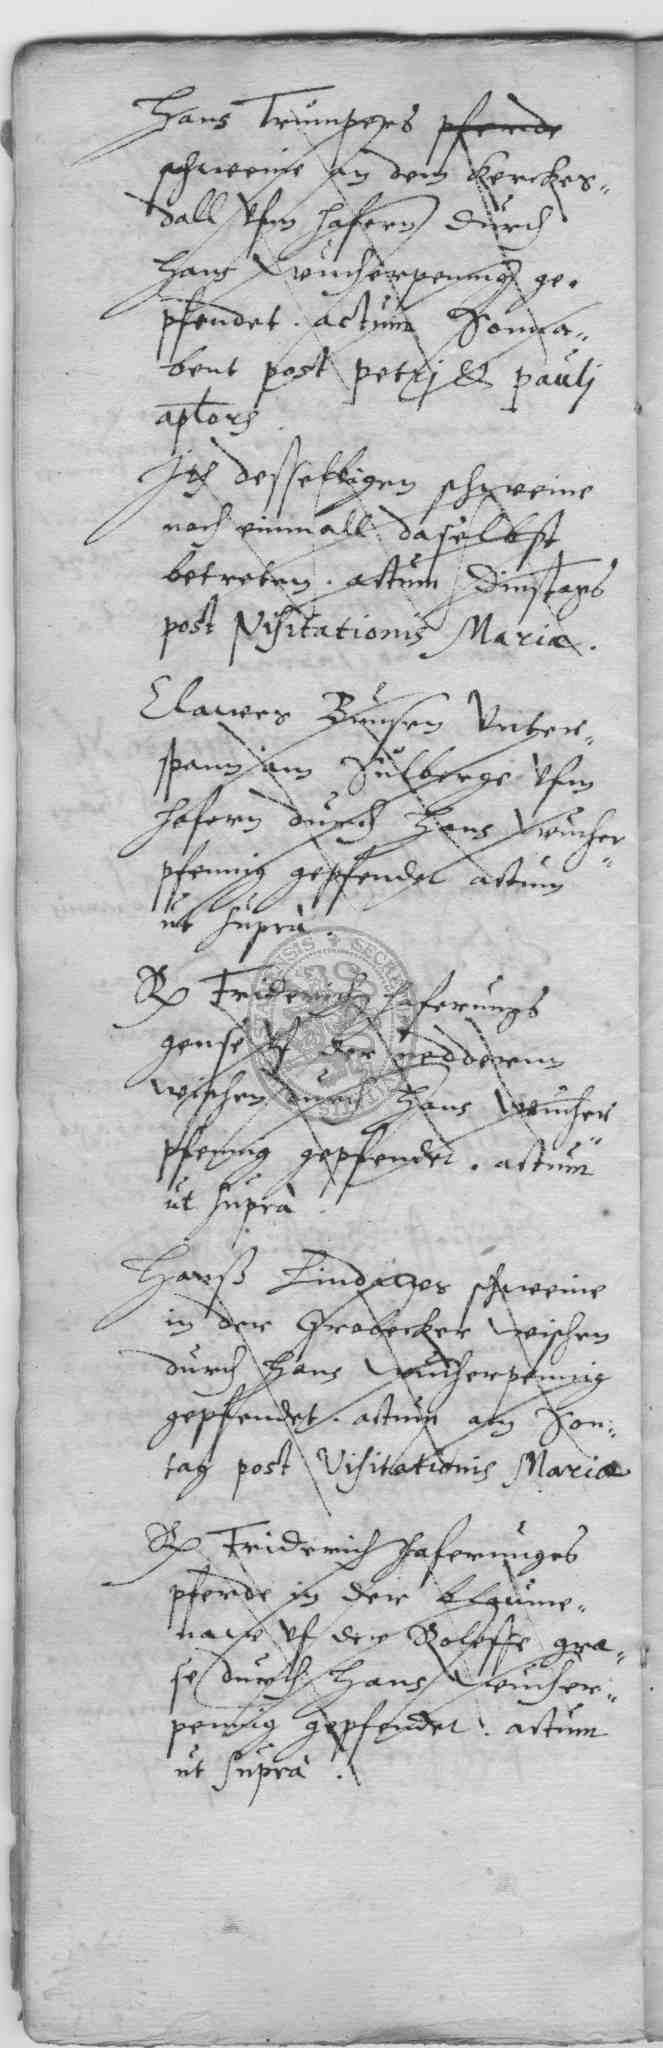 Hans Trumpers pferde
schweine an dem Kerckes„
dall vfm hafern durch
Hans Wucherpennig ge„
pfendet. actum Sonna„
bent post Petrj & Paulj
aptors
It desselbigen schweine
noch einmall daselbst
betreten. actum Dinstags
post Visitationis Mariæ.
Clawes Bunsen Vnter„
spann am Sulberge vfm
hafern durch Hans Wucher„
pfennig gepfendet actum
ut supra.
Rp Friderich Haferungs
gense vf der neddernn
wischen durch Hans Wucher„
pfennig gepfendet. actum
ut supra.
Hanß Lindawes schweine
in der Grobecker wischen
durch Hans Wucherpennig
gepfendet. actum am Son„
tag post Visitationis Mariæ
Rp Friderich Haferunges
pferde in der blaume„
nawe vf der Roleffe gra„
se durch Hans Wucher„
pennig gepfendet. actum
ut supra.